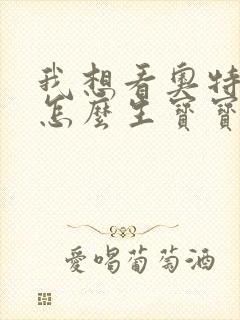 我想看奧特
怎麼生寶寶
愛喝葡萄酒